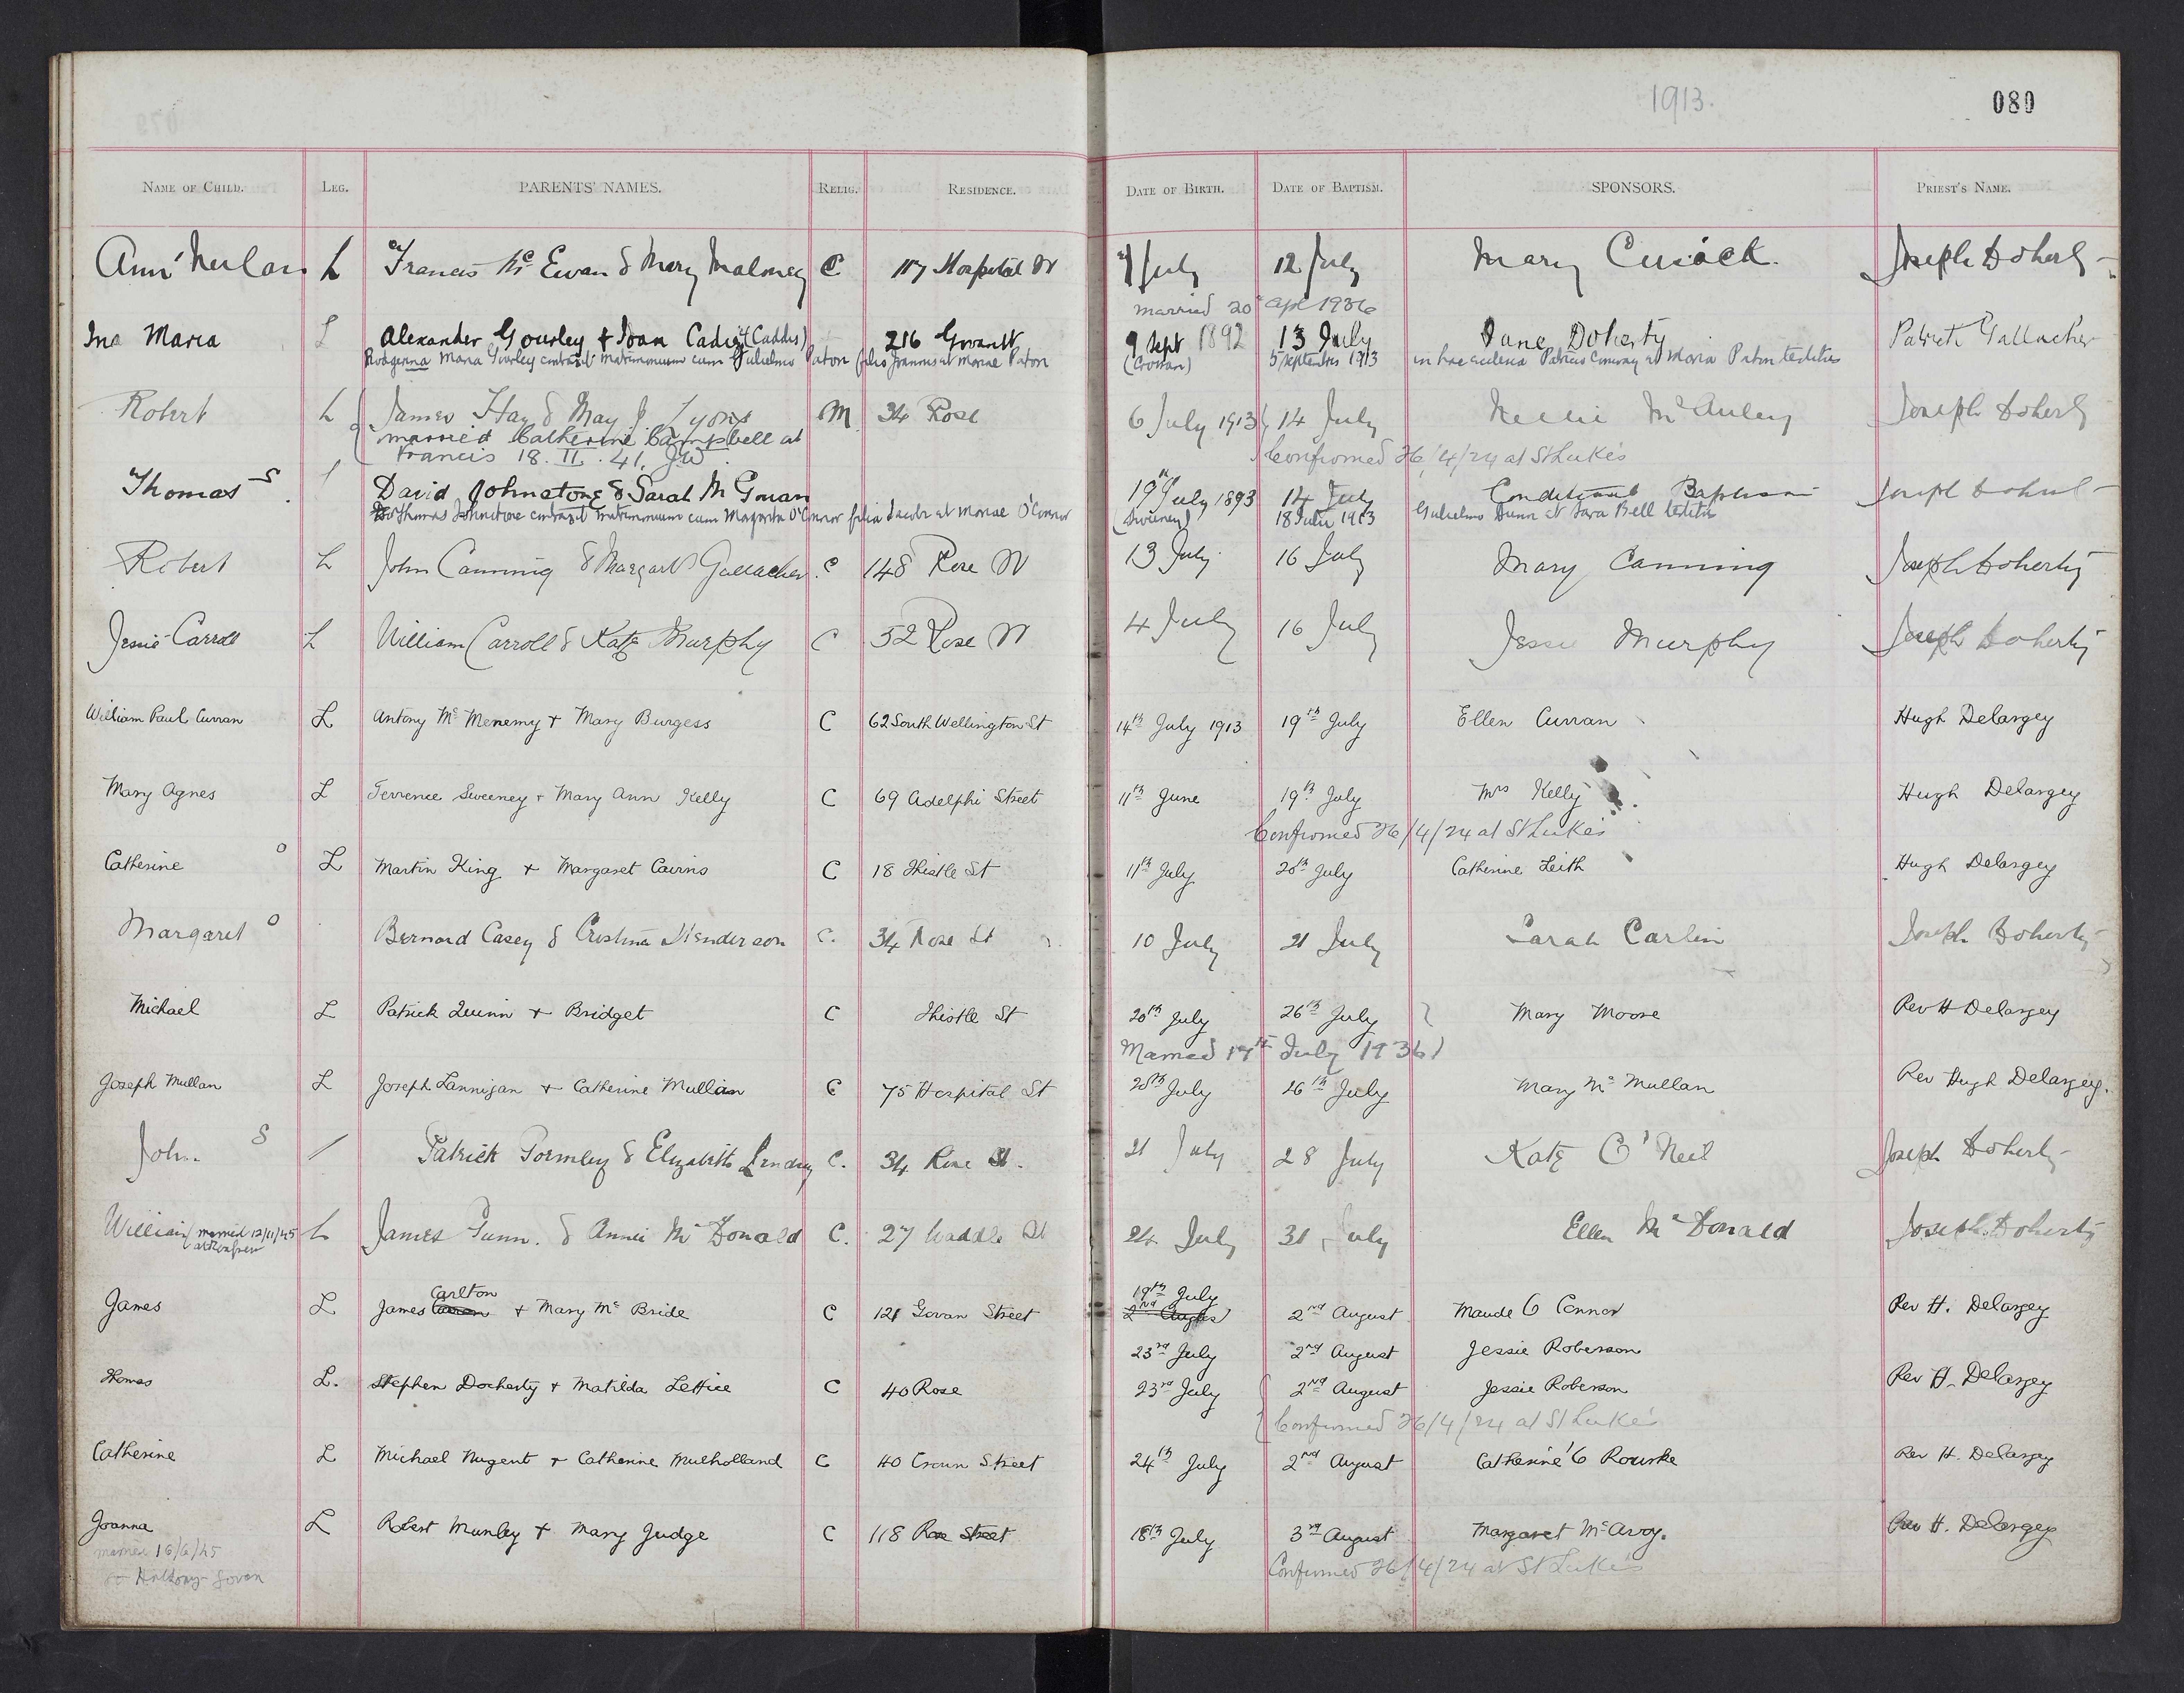 1913.
080
NAME OF CHILD. LEG. PARENTS' NAMES. RELIG. RESIDENCE. DATE OF BIRTH. DATE OF BAPTISM. SPONSORS. PRIEST'S NAME.
Ann L Francis Mc Ewan & Mary Maloney C 117 Hospital St 7 July 12 July Mary Cusack. Joseph Doherty
married 20 Apl 1936
Ina Maria L Alexander Gourley & Joan (Caddis) 216 Govan St 9 Sept 1892 13 July Jane Doherty Patrick Gallacher
Maria Gourley contraxit matrimonium cum Gulielmo Paton filio Joannis et Mariae Paton (Crossan) 5 Septembris 1913 in hac ecclesia Patricio Conway et Maria Paton testibus
Robert L James Hay & May J. Lyons M 34 Rose 6 July 1913 14 July Nellie McAuley Joseph Doherty
married Catherine Campbell at
Francis 18. II. 41. JW
Confirmed 26/4/24 at St Luke's
Thomas S David Johnstone & Sarah McGowan 19th July 1893 14 July Conditional Baptism Joseph Doherty
Thomas Johnstone contraxit matrimonium cum Margarita O'Connor filia Jacobi et Mariae O'Connor (Sweeney) 18 Julii 1913 Gulielmo Dunn et Sara Bell testibus
Robert L John Canning & Margaret Gallacher C 148 Rose St 13 July 16 July Mary Canning Joseph Doherty
Jessie Carroll L William Carroll & Kate Murphy C 52 Rose St 4 July 16 July Jessie Murphy Joseph Doherty
William Paul Curran L Antony Mc Menemy + Mary Burgess C 62 South Wellington St 14th July 1913 19th July Ellen Curran Hugh Delargey
Mary Agnes L Terrence Sweeney + Mary Ann Kelly C 69 Adelphi Street 11th June 19th July Mrs Kelly Hugh Delargey
Confirmed 26/4/24 at St Luke's
Catherine O L Martin King + Margaret Cairns C 18 Thistle St 11th July 20th July Catherine Leith Hugh Delargey
Margaret O Bernard Casey & Cristina Henderson C. 34 Rose St 10 July 21 July Sarah Carlin Joseph Doherty
Michael L Patrick Quinn + Bridget C Thistle St 20th July 26th July Mary Moore Rev H Delargey
Married 17th July 1936
Joseph Mullan L Joseph Lannigan + Catherine Mullan C 75 Hospital St 20th July 26th July Mary Mc Mullan Rev Hugh Delargey.
John S Patrick Gormley & Elizabeth Lindsay C. 34 Rose St. 21 July 28 July Kate O'Neil Joseph Doherty
William (married 12/11/45 at Renfrew L James Gunn. & Annie McDonald C. 27 Waddle St 24 July 31 July Ellen McDonald Joseph Doherty
James L James Carlton + Mary Mc Bride C 121 Govan Street 19th July 2nd August Maude O Connor Rev H. Delargey
23rd July 2nd August Jessie Roberson
Thomas L. Stephen Docherty + Matilda Lettice C 40 Rose 23rd July 2nd August Jessie Roberson Rev H. Delargey
Confirmed 26/4/24 at St Luke's
Catherine L Michael Nugent + Catherine Mulholland C 40 Crown Street 24th July 2nd August Catherine O'Rourke Rev H. Delargey
Joanna L Robert Munley + Mary Judge C 118 Rose Street 18th July 3rd August Margaret McAvoy. Rev H. Delargey
married 16/6/45
St Anthony Govan
Confirmed 26/4/24 at St Luke's